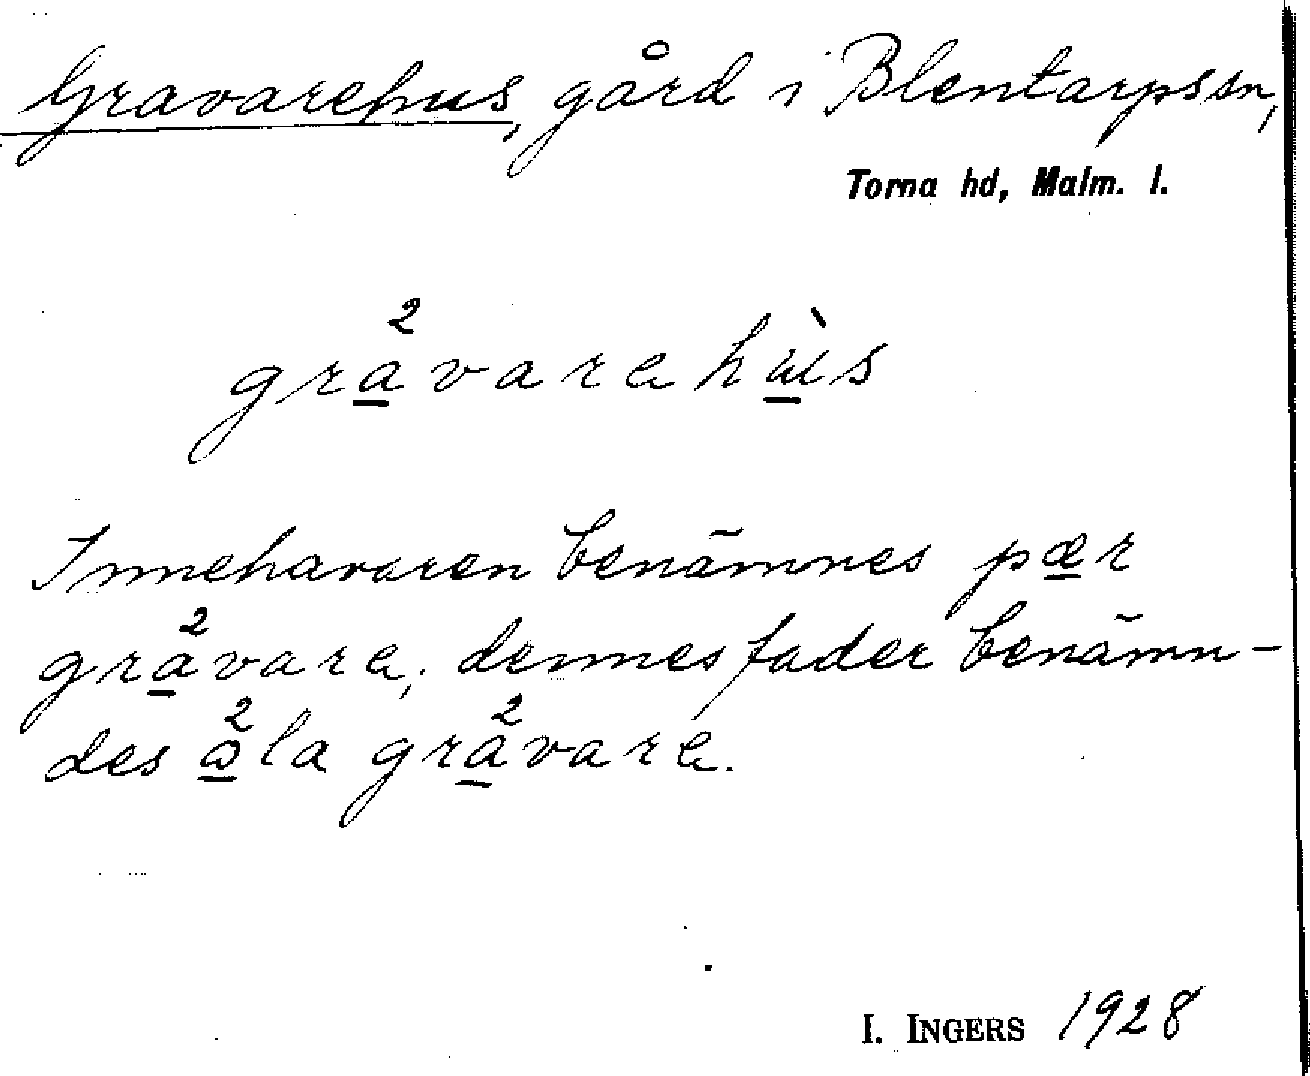 Gravarehus, gård i Blentarps sn,
Torna hd, Malm. l.
gra̱²varehù̱s
Innehavaren benämnes pæ̱r
gra̱²vare; dennes fader benämn-
des ω̱²la gra̱²vare.
I. INGERS 1928